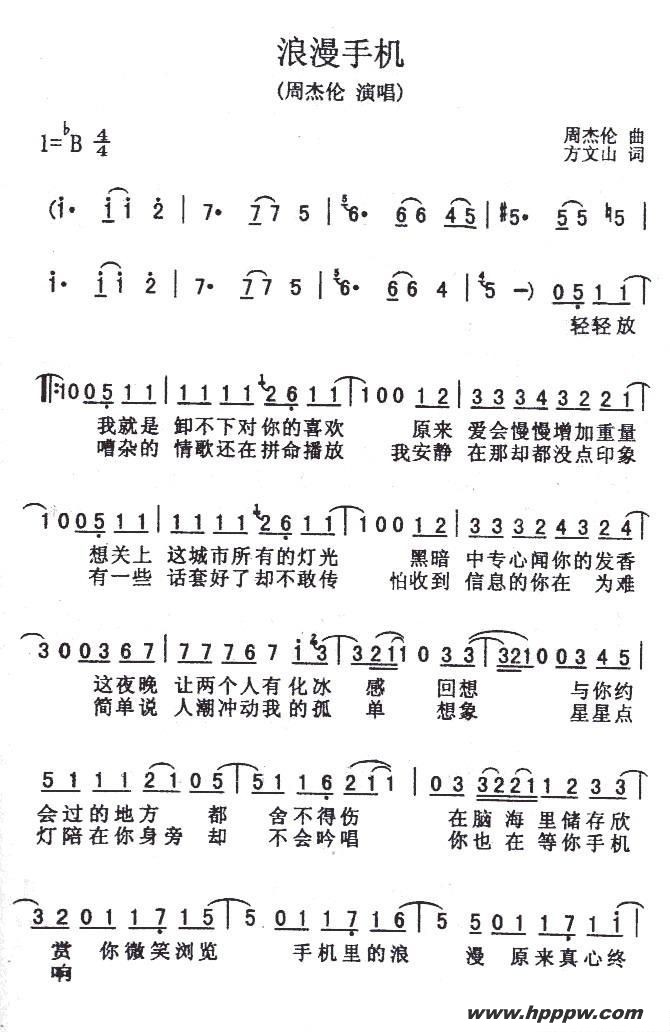 浪漫手机
(周杰伦 演唱)
1=♭B 4/4
周杰伦 曲
方文山 词
(i· i i 2 | 7· 7 7 5 | 6· 6 6 4 5 | #5· 5 5 ♮5 |
i· i i 2 | 7· 7 7 5 | 6· 6 6 4 | 5 -) 0 5 1 1 |
轻轻放
‖: 1 0 0 5 1 1 | 1 1 1 1 2 6 1 1 | 1 0 0 1 2 | 3 3 3 4 3 2 2 1 |
我就是 卸不下对你的喜欢 原来 爱会慢慢增加重量
嘈杂的 情歌还在拼命播放 我安静 在那却都没点印象
1 0 0 5 1 1 | 1 1 1 1 2 6 1 1 | 1 0 0 1 2 | 3 3 3 2 4 3 2 4 |
想关上 这城市所有的灯光 黑暗 中专心闻你的发香
有一些 话套好了却不敢传 怕收到 信息的你在 为难
3 0 0 3 6 7 | 7 7 7 6 7 i 3 | 3 2 1 1 0 3 3 | 3 2 1 0 0 3 4 5 |
这夜晚 让两个人有化冰 感 回想 与你约
简单说 人潮冲动我的孤 单 想象 星星点
5 1 1 1 2 1 0 5 | 5 1 1 6 2 1 1 | 0 3 3 2 2 1 1 2 3 3 |
会过的地方 都 舍不得伤 在脑 海里储存欣
灯陪在你身旁 却 不会吟唱 你也在 等你手机
3 2 0 1 1 7 1 5 | 5 0 1 1 7 1 6 | 5 5 0 1 1 7 1 i |
赏 你微笑浏览 手机里的浪 漫 原来真心终
响
www.hpppw.com